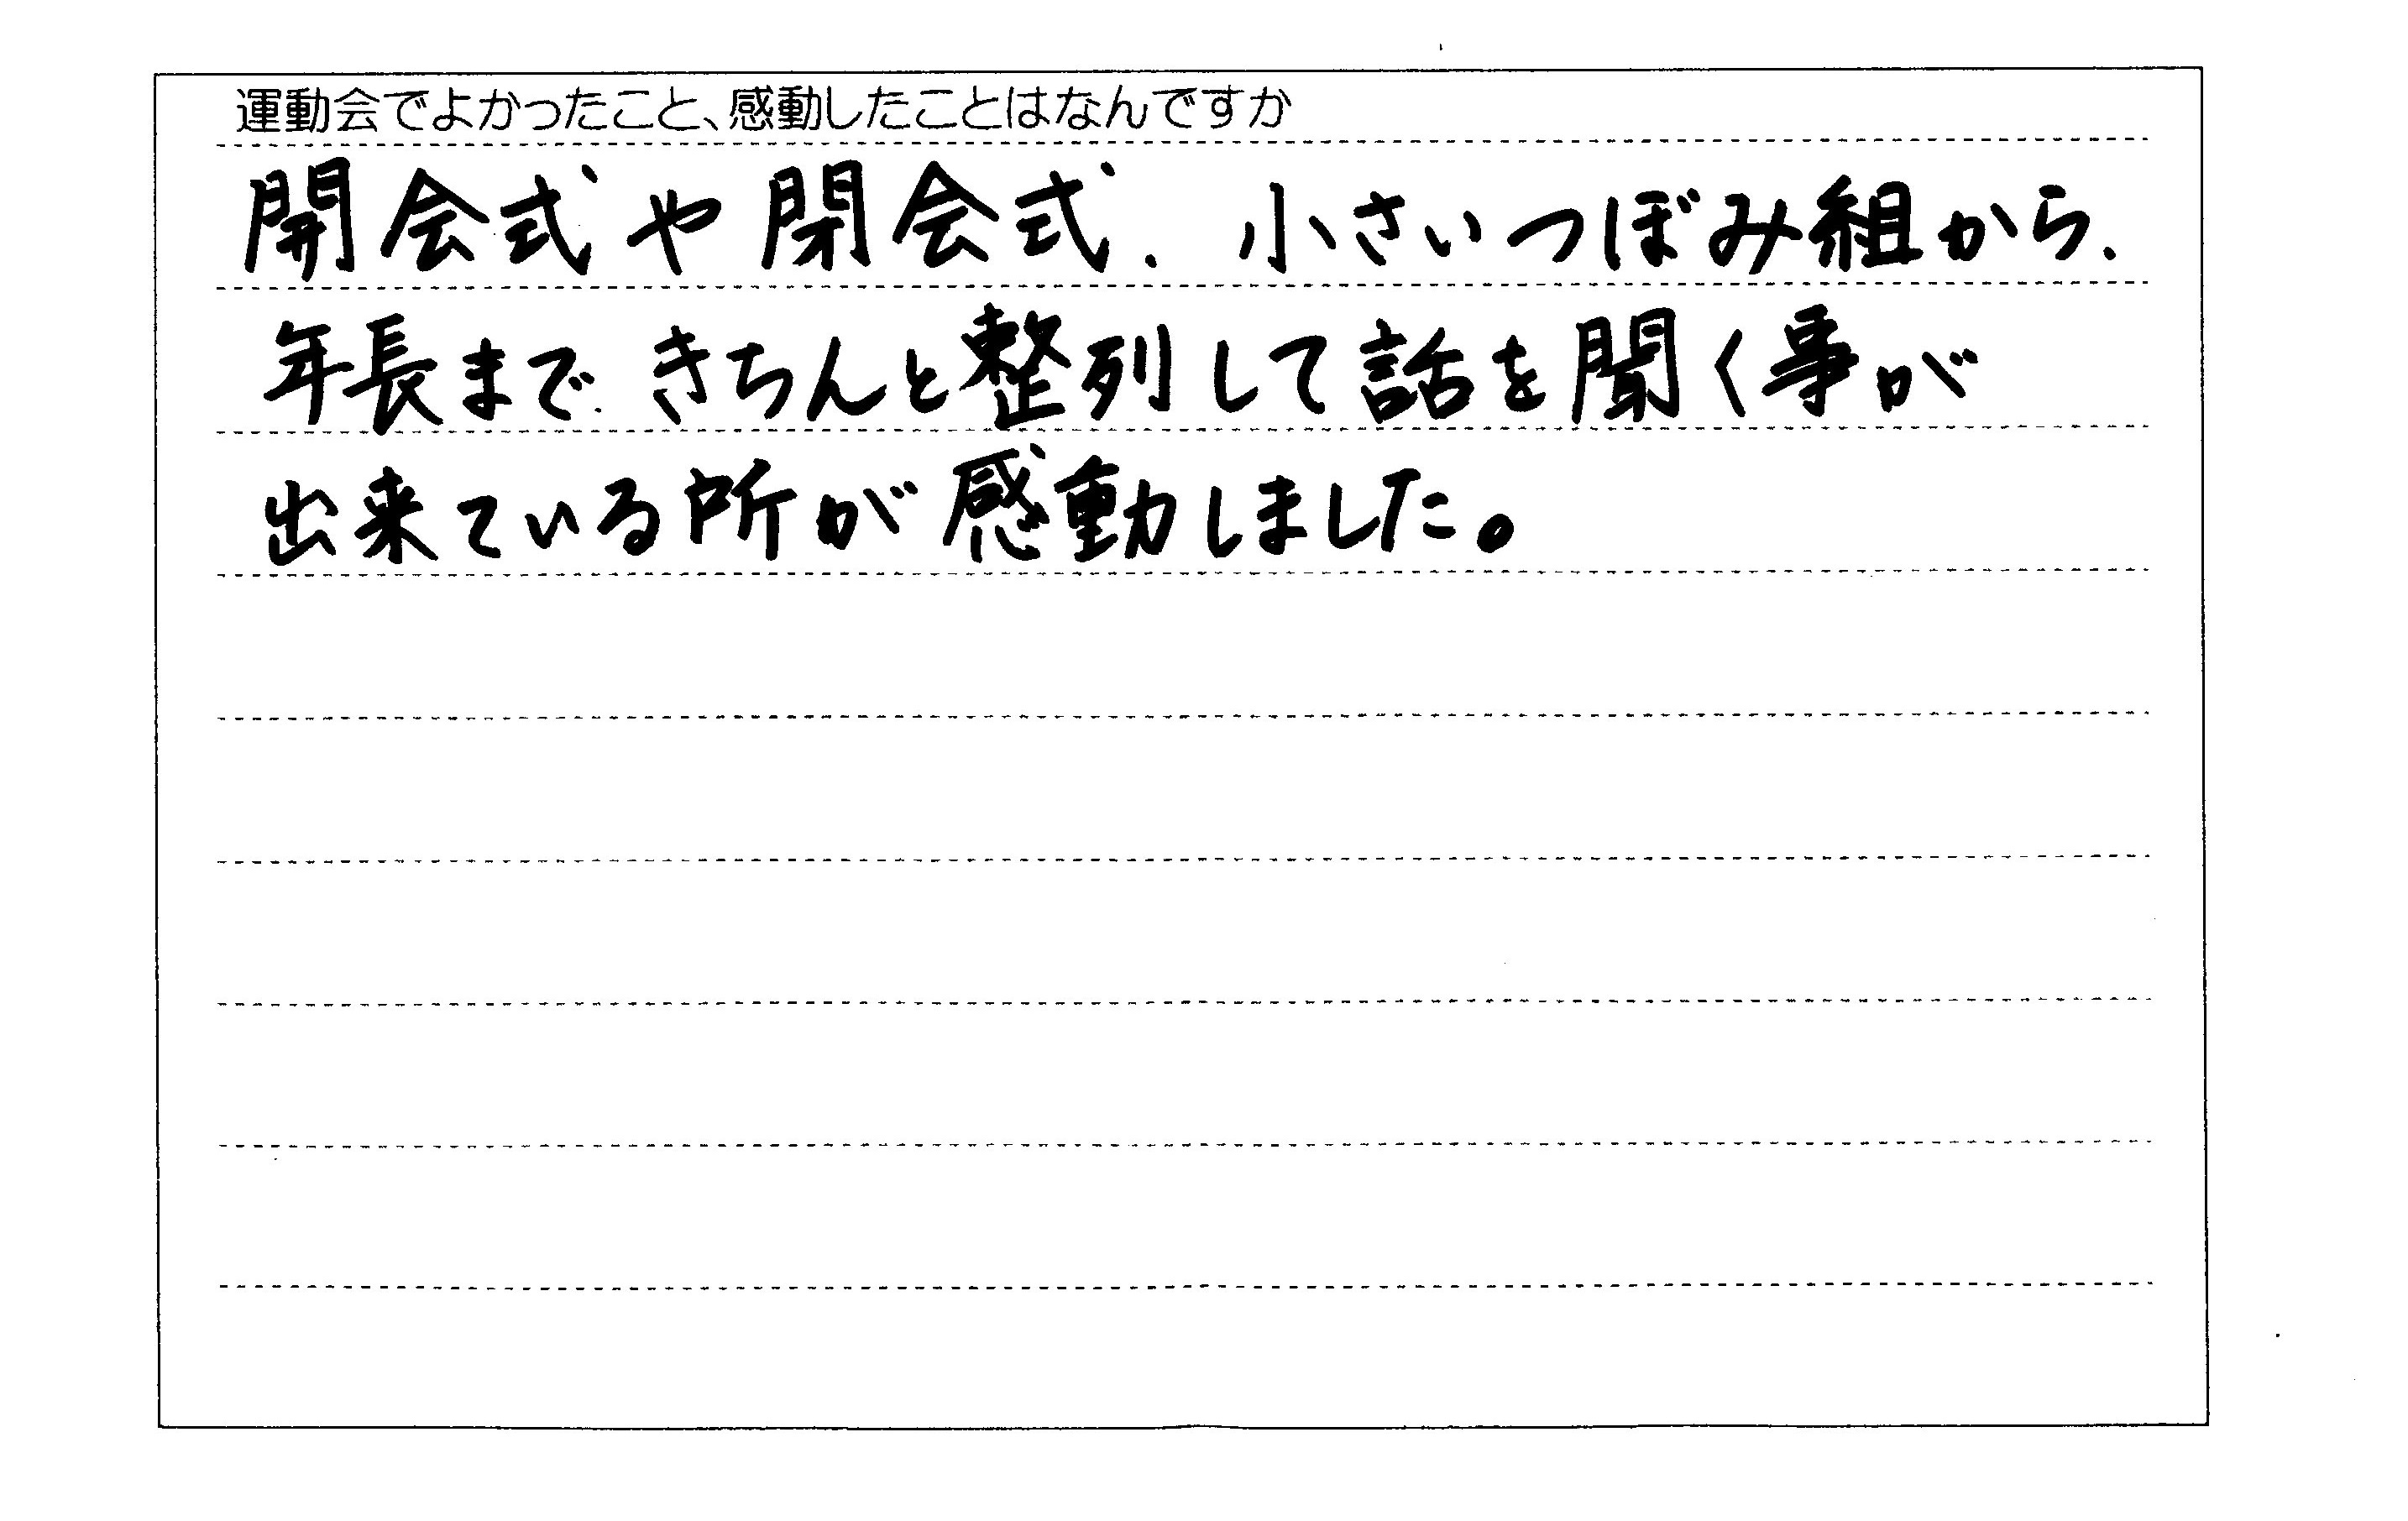 運動会でよかったこと、感動したことはなんですか
開会式や閉会式、小さいつぼみ組から、
年長まで、きちんと整列して話を聞く事が
出来ている所が感動しました。